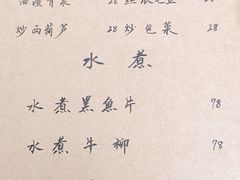 炒西葫芦 28 炒包菜 28
水煮
水煮黑鱼片 78
水煮牛柳 78